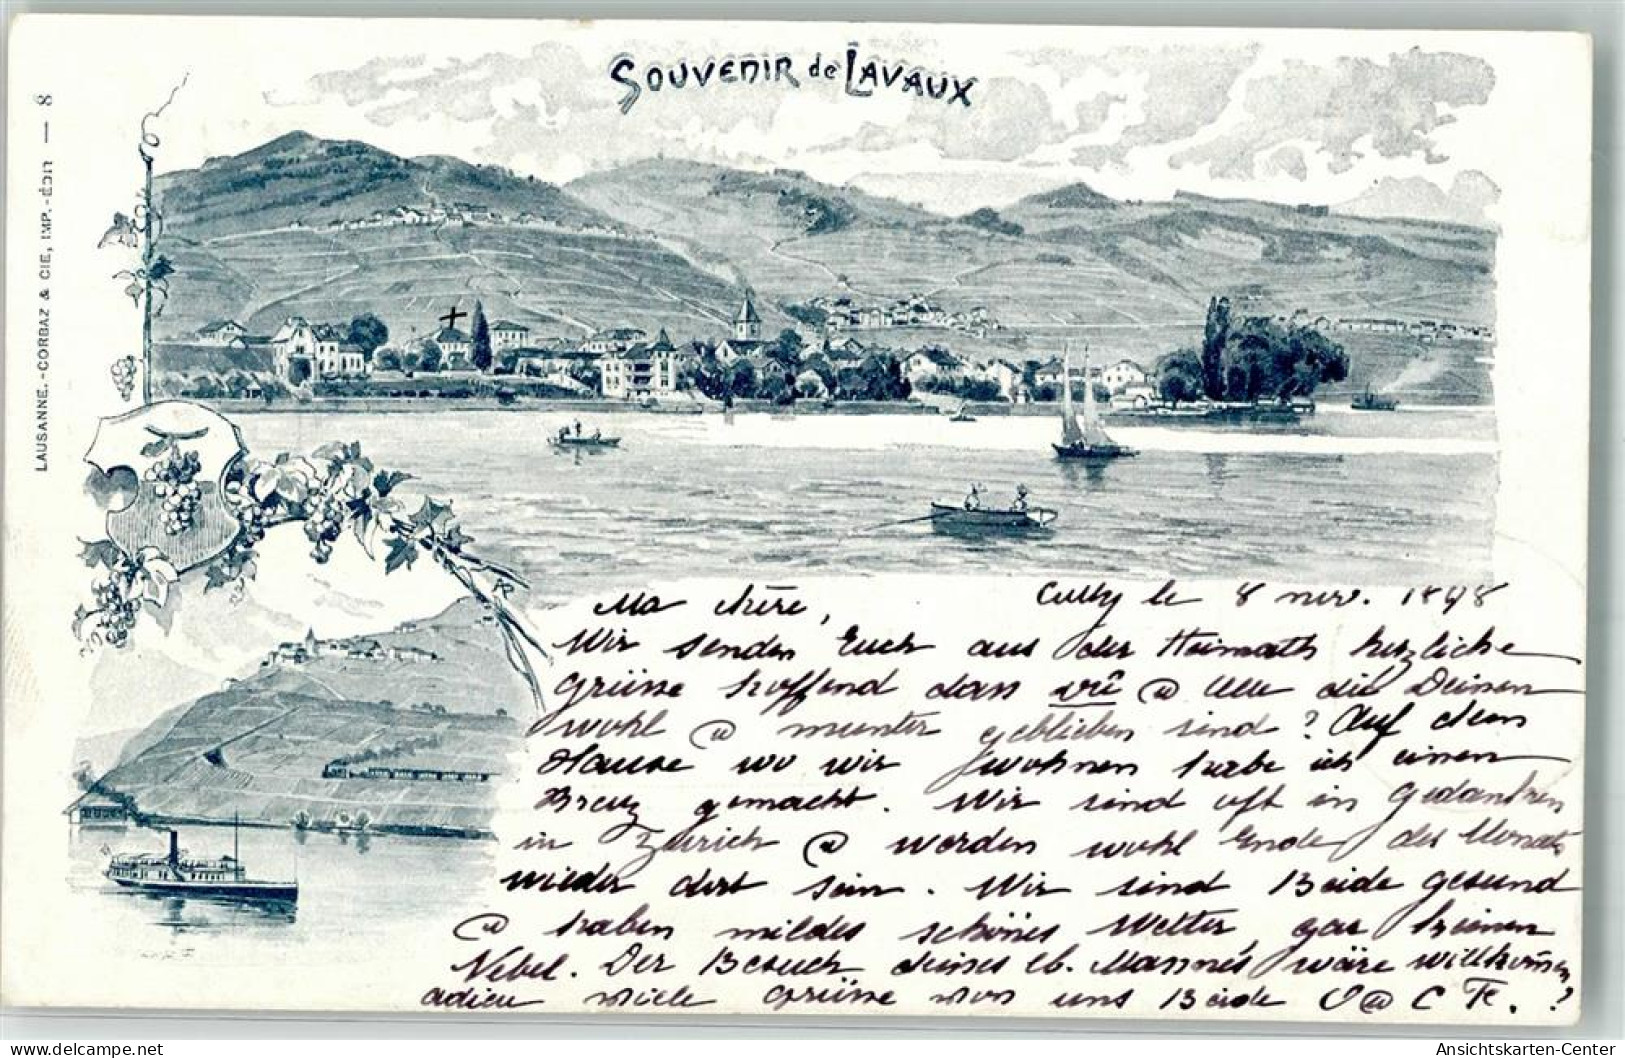 SOUVENIR de LAVAUX
LAUSANNE.-CORBAZ & CIE, IMP.-ÉDIT — 8
AR
Ma chère, Cully le 8 nov. 1898
Wir senden Euch aus der Heimath herzliche
Grüsse hoffend dass @ Alle die Deinen
wohl @ munter geblieben sind? Auf dem
Hause wo wir wohnen habe ich einen
Kreuz gemacht. Wir sind oft in Gedanken
in Zürich @ werden wohl Ende des Monats
wieder dort sein. Wir sind Beide gesund
@ haben mildes schönes Wetter, gar keinen
Nebel. Der Besuch deines lb. Mannes wäre willkom̄en
adieu viele Grüsse von uns Beide
Ansichtskarten-Center